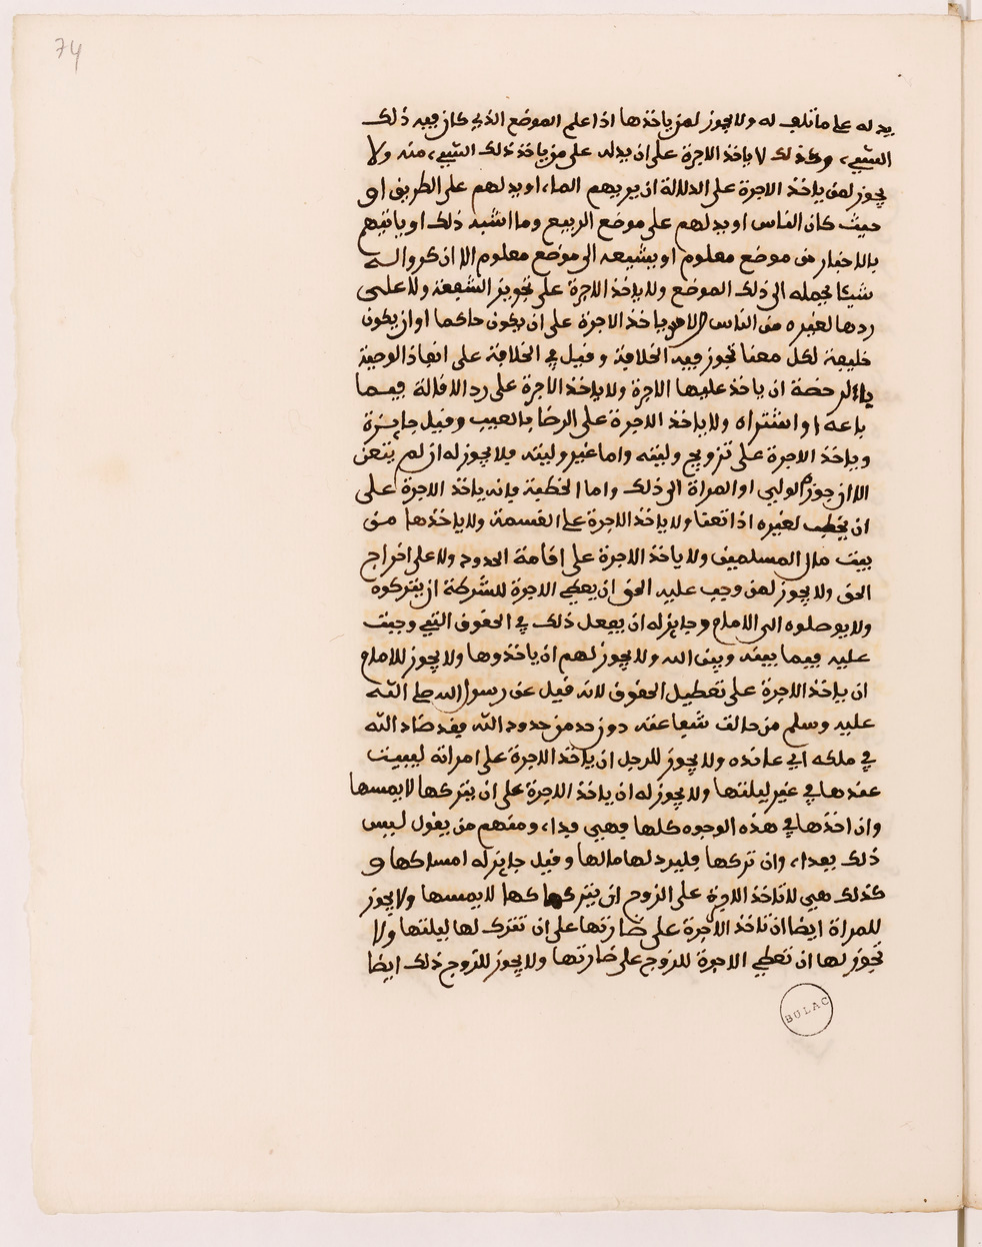 74
يدله على ما تلف له ولا يجوز لمن ياخذها اذا علم الموضع الذي كان فيه ذلك
الشيء، وكذلك لا ياخذ الاجرة على ان يدله على من ياخذ ذلك الشيء، منه ولا
يجوز لمن ياخذ الاجرة على الدلالة ان يريهم الماء، او يدلهم على الطريق او
حيث كان الناس او يدلهم على موضع الربيع وما اشبه ذلك او ياتيهم
بالاخبار من موضع معلوم او يشيعه الى موضع معلوم الا ان كروا له
شيئا يحمله الى ذلك الموضع ولا ياخذ الاجرة على تجويز الشفعة ولا على
ردها لغيره من الناس ولا ياخذ الاجرة على ان يكون حاكما او ان يكون
خليفة لكل معنا تجوز فيه الخلافة وقيل في الخلافة على انفاذ الوصية
بالرخصة ان ياخذ عليها الاجرة ولا ياخذ الاجرة على رد الاقالة فيما
باعه او اشتراه ولا ياخذ الاجرة على الرضا بالعيب وقيل جايزة
وياخذ الاجرة على تزويج وليته واما غير وليته فلا يجوز له ان لم يتعن
الا ان جوزه الولي او المراة الى ذلك واما الخطبة فانه ياخذ الاجرة على
ان يخطب لغيره اذا تعنا ولا ياخذ الاجرة على القسمة ولا ياخذها من
بيت مال المسلمين ولا ياخذ الاجرة على اقامة الحدود ولا على اخراج
الحق ولا يجوز لمن وجب عليه الحق ان يعطي الاجرة للشركة ان يتركوه
ولا يوصلوه الى الامام وجايز له ان يفعل ذلك في الحقوق التي وجبت
عليه فيما بينه وبين الله ولا يجوز لهم ان ياخذوها ولا يجوز للامام
ان ياخذ الاجرة على تعطيل الحقوق لانه قيل عن رسول الله صلى الله
عليه وسلم من حالت شفاعته دون حد من حدود الله فقد ضاد الله
في ملكه اي عانده ولا يجوز للرجل ان ياخذ الاجرة على امراته ليبيت
عندها في غير ليلتها ولا يجوز له ان ياخذ الاجرة على ان يتركها لا يمسها
وان اخذها في هذه الوجوه كلها فهي فداء، ومنهم من يقول ليس
ذلك بفداء، وان تركها فليرد لها مالها وقيل جايز له امساكها و
كذلك هي لا تاخذ الاجرة على الزوج ان يتركها لا يمسها ولا يجوز
للمراة ايضا ان تاخذ الاجرة على ضارتها على ان تترك لها ليلتها ولا
تجوز لها ان تعطي الاجرة للزوج على ضارتها ولا يجوز للزوج ذلك ايضا
BULAC